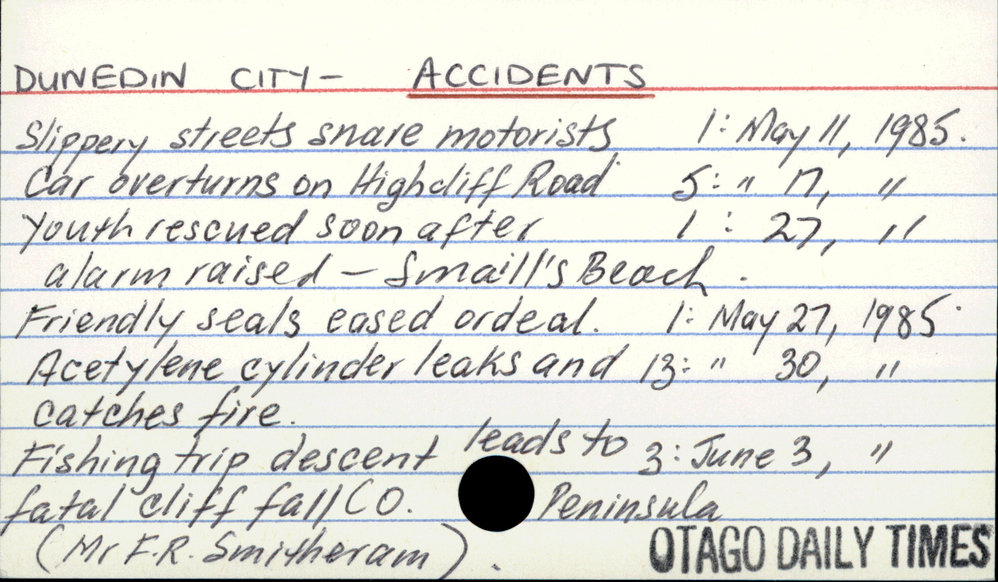 DUNEDIN CITY - ACCIDENTS
Slippery streets snare motorists 1: May 11, 1985.
Car overturns on Highcliff Road 5: " 17, "
Youth rescued soon after 1: 27, "
alarm raised - Smaill's Beach.
Friendly seals eased ordeal. 1: May 27, 1985.
Acetylene cylinder leaks and 13: " 30, "
catches fire.
Fishing trip descent leads to 3: June 3, "
fatal cliff fall CO. Peninsula
(Mr F.R. Smitheram).
OTAGO DAILY TIMES